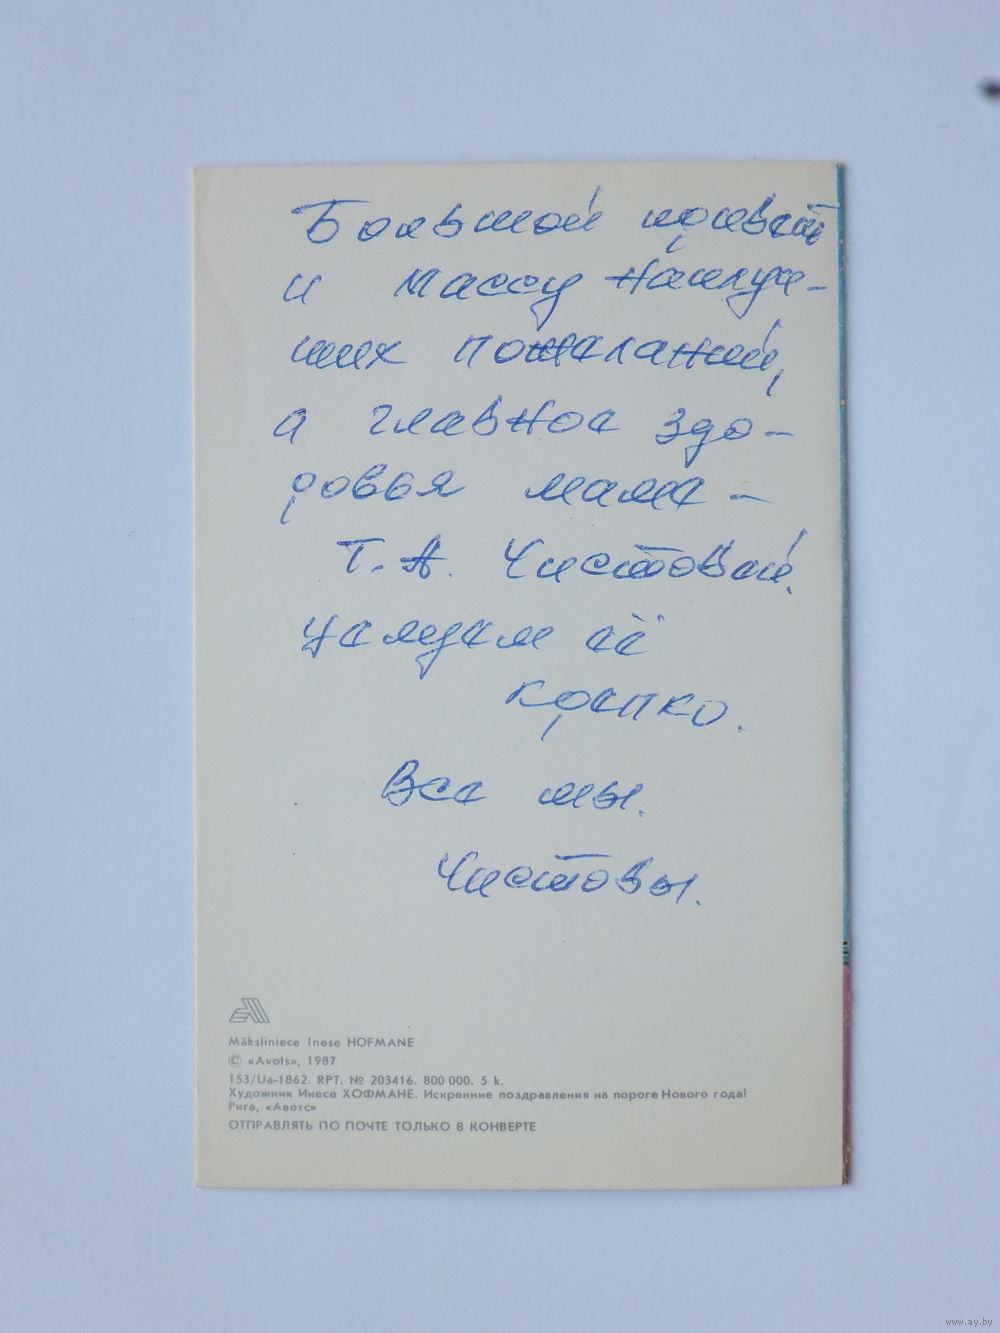 Большой привет
и массу наилуч-
ших пожеланий,
а главное здо-
ровья маме -
Т. А. Чистовой.
Целуем её
крепко.
Все мы.
Чистовы.
Māksliniece Inese HOFMANE
© «Avots», 1987
153/Ua-1862. RPT. № 203416. 800 000. 5 k.
Художник Инесе ХОФМАНЕ. Искренние поздравления на пороге Нового года!
Рига, «Авотс»
ОТПРАВЛЯТЬ ПО ПОЧТЕ ТОЛЬКО В КОНВЕРТЕ
www.ay.by